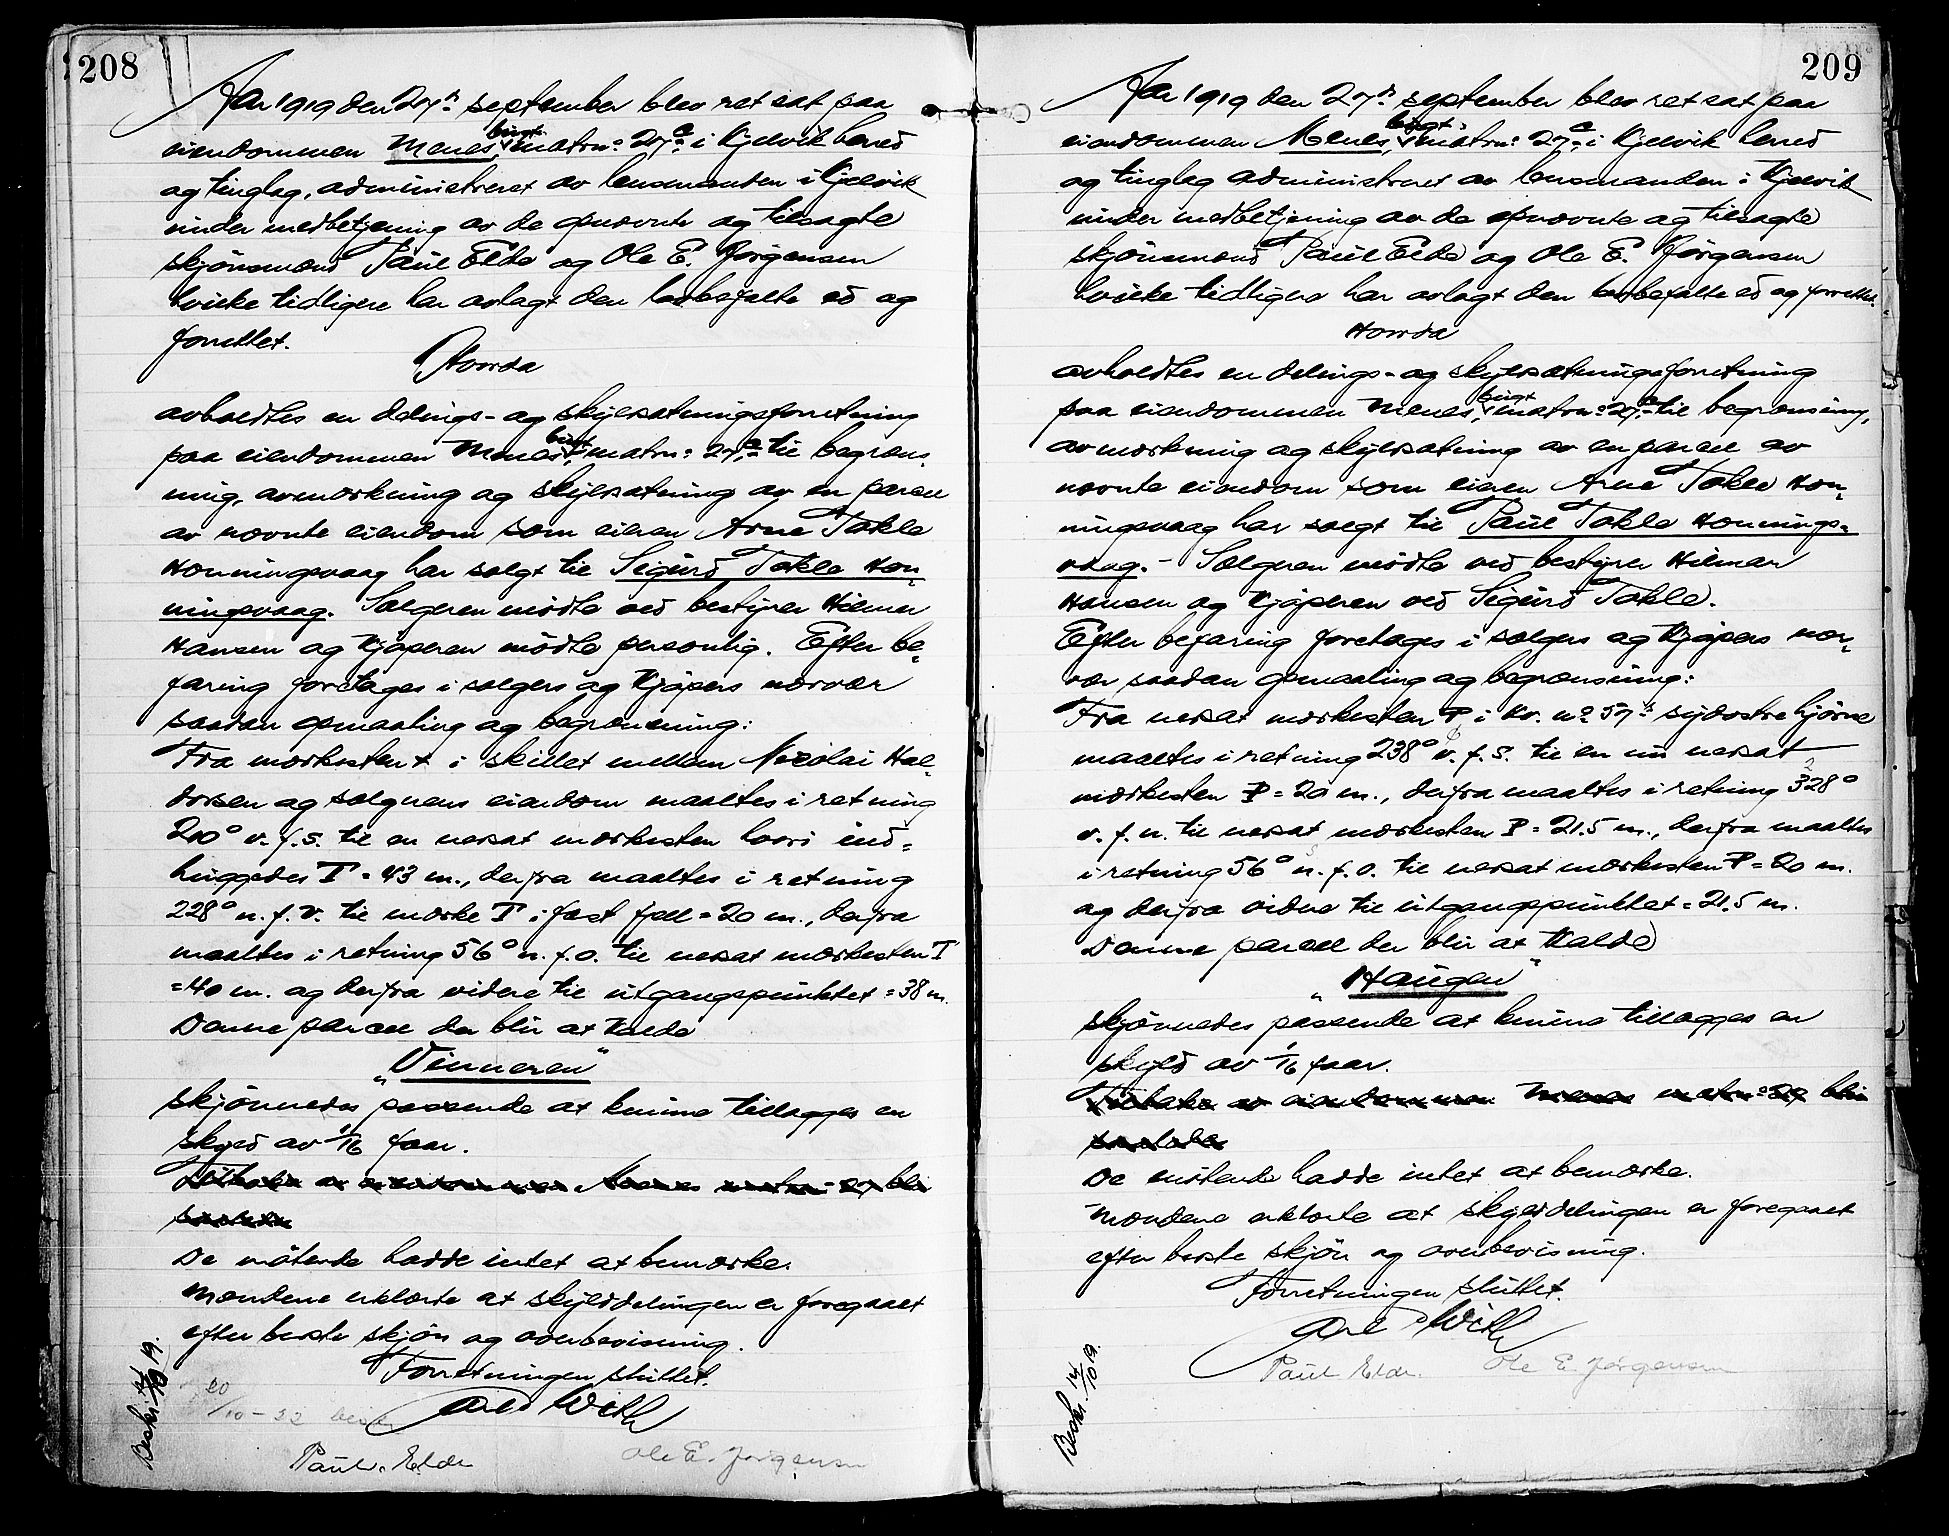 208
Aar 1919 den 27de september blev ret sat paa
eiendommen Menes, bugt. matrn: 27a i Kjelvik herred
og tinglag, administreret av lensmanden i Kjelvik
under medbetjening av de opnævnte og tilsagte
skjönsmænd Paul Elde og Ole E. Jørgensen
hvilke tidligere har avlagt den lovbefalte ed og
forrettet.
Hvorda
avholdtes en delings- og skyldsætningsforretning
paa eiendommen Menes, bugt matrn: 27,a til begræns-
ning, avmerkning og skyldsætning av en parcel
av nævnte eiendom som eieren Arne Takle
Honningsvaag har solgt til Sigurd Takle Hon-
ningsvaag. Sælgeren mödte ved bestyrer Hilmar
Hansen og kjöperen mödte personlig. Efter be-
faring foretages i sælgers og kjöpers nærvær
saadan opmaaling og begrænsning:
Fra merkesten + i skillet mellem Nicolai Hal-
dorsen og sælgerens eiendom maaltes i retning
200° v. f. s. til en nedsat merkesten hvori ind-
huggedes T = 43 m., derfra maaltes i retning
228° n. f. v. til merke T i fast fjell = 20 m., derfra
maaltes i retning 56° n. f. o. til nedsat merkesten T
= 40 m. og derfra videre til utgangspunktet = 38 m.
Denne parcel der blir at kalde
„Vinneren"
skjönnedes passende at kunne tillægges en
skyld av 1/16 faar.
Tilbake av eiendommen Menes matrn: 27 blir
saaledes
De mötende hadde intet at bemerke.
Mændene erklærte at skylddelingen er foregaaet
efter beste skjön og overbevisning.
Forretningen sluttet.
Carl With
Paul Elde
Ole E. Jørgensen
Beskr. 14/10 19.
20/10-22
209
Aar 1919 den 27de september blev ret sat paa
eiendommen Menes, bugt. matrn: 27a i Kjelvik herred
og tinglag administreret av lensmanden i Kjelvik
under medbetjening av de opnævnte og tilsagte
skjönsmænd Paul Elde og Ole E. Jørgensen
hvilke tidligere har avlagt den lovbefalte ed og forrettet.
Hvorda
avholdtes en delings- og skyldsætningsforretning
paa eiendommen Menes, bugt matrn: 27,a til begrænsning,
avmerkning og skyldsætning av en parcel av
nævnte eiendom som eieren Arne Takle Hon-
ningsvaag har solgt til Paul Takle Honnings-
vaag. - Sælgeren mödte ved bestyrer Hilmar
Hansen og kjöperen ved Sigurd Takle.
Efter befaring foretages i sælgers og kjöpers nær-
vær saadan opmaaling og begrænsning:
Fra nedsat merkesten P i kv. no 57's sydostre hjörne
maaltes i retning 238° v. f. s. til en nu nedsat
merkesten P = 20 m., derfra maaltes i retning 328°
v. f. n. til nedsat merkesten P = 21.5 m., derfra maaltes
i retning 56° n. f. o. til nedsat merkesten P = 20 m.
og derfra videre til utgangspunktet = 21.5 m.
Denne parcel der blir at kalde
„Haugen"
skjönnedes passende at kunne tillægges en
skyld av 1/16 faar.
Tilbake av eiendommen Menes matrn: 27 blir
saaledes
De mötende hadde intet at bemerke.
Mændene erklærte at skylddelingen er foregaaet
efter beste skjön og overbevisning.
Forretningen sluttet.
Carl With
Paul Elde.
Ole E. Jørgensen
Beskr. 14/10 19.